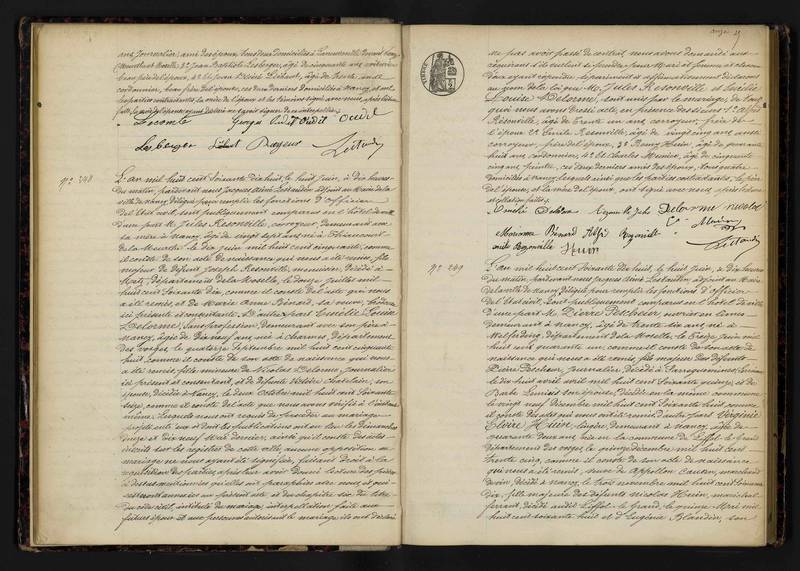 ans, journalier, ami des époux, tous deux domiciliés à
Meurthe et Moselle, 3° Jean Baptiste Lesberger, âgé de cinquante ans, cordonnier
beau père de l'époux, 4° et Jean Désiré Liébaut, âgé de trente ans
cordonnier, beau frère de l'époux, ces deux derniers domiciliés à Nancy, et ont
les parties contractantes, la mère de l'époux et les témoins signé avec nous, après lecture
Lecomte Georges Oudet Oudet Oudet
Lesberger Liébaut Bayeur
N° 248
L'an mil huit cent soixante dix huit, le huit juin, à dix heures
du matin, pardevant nous Jacques Aimé adjoint au Maire de la
ville de Nancy, délégué pour remplir les fonctions d'Officier
de l'état civil, sont publiquement comparus en l'hôtel de ville
d'une part M. Jules Rezonville, corroyeur, demeurant avec
sa mère à Nancy, âgé de vingt sept ans, né à
de la Meurthe le dix juin mil huit cent cinquante, comme
il conste de son acte de naissance qui nous a été remis, fils
majeur de défunt Joseph Rezonville, menuisier, décédé à
Metz, département de la Moselle, le douze juillet mil
huit cent soixante dix, comme il conste de l'acte qui nous
a été remis et de Marie Anne Bénard, sa veuve,
ici présente et consentante, et d'autre part Emélie Louise
Delorme, sans profession, demeurant avec son père à
Nancy, âgée de dix neuf ans, née à Charmes département
des Vosges, le quatorze septembre mil huit cent cinquante
huit, comme il conste de son acte de naissance qui nous
a été remis, fille mineure de Nicolas Delorme, journalier
ici présent et consentant, et de défunte Victoire Chatelain, son
épouse, décédée à Nancy, le deux octobre mil huit cent soixante
seize, comme il conste de l'acte que nous avons vérifié à l'instant
même, lesquels nous ont requis de procéder au mariage
projeté entre eux et dont les publications ont eu lieu les dimanches
douze et dix neuf mai dernier, ainsi qu'il conste des actes
inscrits sur les registres de cette ville, aucune opposition au
mariage ne nous ayant été signifiée, faisant droit à la
réquisition des parties, après leur avoir donné lecture des pièces
ci dessus mentionnées qu'elles ont paraphées avec nous, et qui
resteront annexées au présent acte et du chapitre six, du titre
du code civil, intitulé du mariage, interpellation faite aux
futurs époux et aux personnes autorisant le mariage, ils ont déclaré
ne pas avoir passé de contrat, nous avons demandé aux
requérants s'ils veulent se prendre pour Mari et femme et chacun
d'eux ayant répondu séparément et affirmativement, déclarons
au nom de la loi que M. Jules Rezonville et Emélie
Louise Delorme, sont unis par le mariage, de tout
quoi nous avons dressé acte, en présence des sieurs 1° Alfred
Rezonville, âgé de trente un ans, corroyeur, frère de
l'époux 2° Emile Rezonville, âgé de vingt cinq ans aussi
corroyeur, frère de l'époux, 3° Remy Huin, âgé de quarante
huit ans, cordonnier, 4° et Charles Munier, âgé de cinquante
cinq, peintre, ces deux derniers amis des époux, tous quatre
domiciliés à Nancy, lesquels ainsi que les parties contractantes, le père
de l'épouse, et la mère de l'époux, ont signé avec nous, après lecture
Amélie Delorme Rezonville Jules Delorme nicolas
Marianne Bénard Alfred Rezonville Ch. Munier
emile Rezonville Huin
N° 249
L'an mil huit cent soixante dix huit, le huit juin, à dix heures
du matin, pardevant nous Jacques Aimé adjoint au Maire
de la ville de Nancy, délégué pour remplir les fonctions d'Officier
de l'état civil, sont publiquement comparus en l'hôtel de ville
d'une part M. Pierre Pécheur ouvrier en limes
demeurant à Nancy, âgé de trente six ans né à
Welferding, département de la Moselle, le treize juin mil
huit cent quarante un, comme il conste de son acte de
naissance qui nous a été remis, fils majeur des défunts
Pierre Pécheur, journalier, décédé à Sarreguemines, Lorraine
le dix huit avril mil huit cent soixante quinze, et de
Barbe son épouse, décédée en la même commune
le vingt neuf décembre mil huit cent soixante huit, comme
il conste des actes qui nous ont été remis, d'autre part Virginie
Elvire Huin, lingère, demeurant à Nancy, âgée de
quarante deux ans, née en la commune de Liffol le Grand
département des Vosges, le quinze décembre mil huit cent
trente cinq, comme il conste de son acte de naissance
qui nous a été remis, veuve de Appollon Cautin, marchand
de vin, décédé à Nancy, le trois novembre mil huit cent soixante
dix, fille majeure des défunts Nicolas Huin, maréchal
ferrant, décédé audit Liffol le Grand, le quinze mai mil
huit cent soixante huit, et d'Eugénie Blandin, son